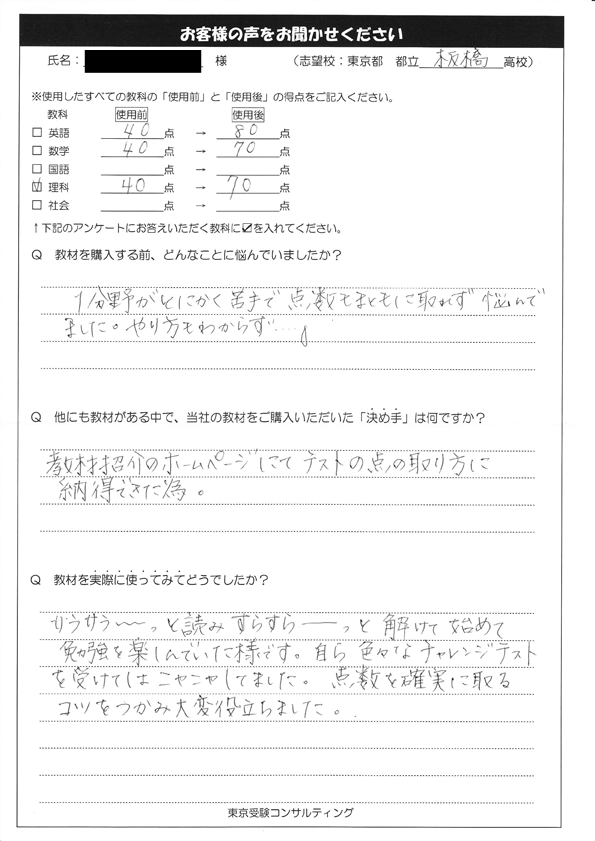 お客様の声をお聞かせください
氏名： 様 （志望校：東京都 都立 板橋 高校）
※使用したすべての教科の「使用前」と「使用後」の得点をご記入ください。
教科 使用前 使用後
□ 英語 40 点 → 80 点
□ 数学 40 点 → 70 点
□ 国語 点 → 点
☑ 理科 40 点 → 70 点
□ 社会 点 → 点
↑下記のアンケートにお答えいただく教科に☑を入れてください。
Q 教材を購入する前、どんなことに悩んでいましたか？
1分野がとにかく苦手で点数もまともに取れず 悩んで
ました。やり方もわからず…。
Q 他にも教材がある中で、当社の教材をご購入いただいた「決め手」は何ですか？
教材紹介のホームページにてテストの点の取り方に
納得できた為。
Q 教材を実際に使ってみてどうでしたか？
サラサラ〜〜っと読み すらすら――っと 解けて 始めて
勉強を楽しんでいた様です。自ら 色々なチャレンジテスト
を受けてはニヤニヤしてました。 点数を確実に取る
コツをつかみ大変役立ちました。
東京受験コンサルティング